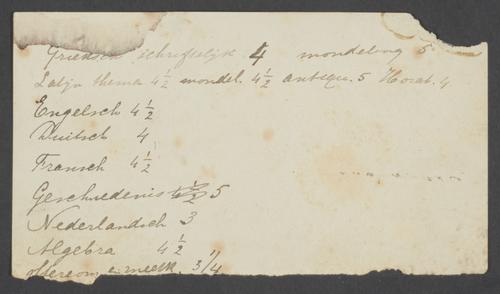 Grieksch schriftelijk 4 mondeling 5
Latijn thema 4½ mondel. 4½ antiqu. 5 Horat. 4
Engelsch 4½
Duitsch 4
Fransch 4½
Geschiedenis 4½ 5
Nederlandsch 3
Algebra 4½
Stereom. e. meetk. 3/4